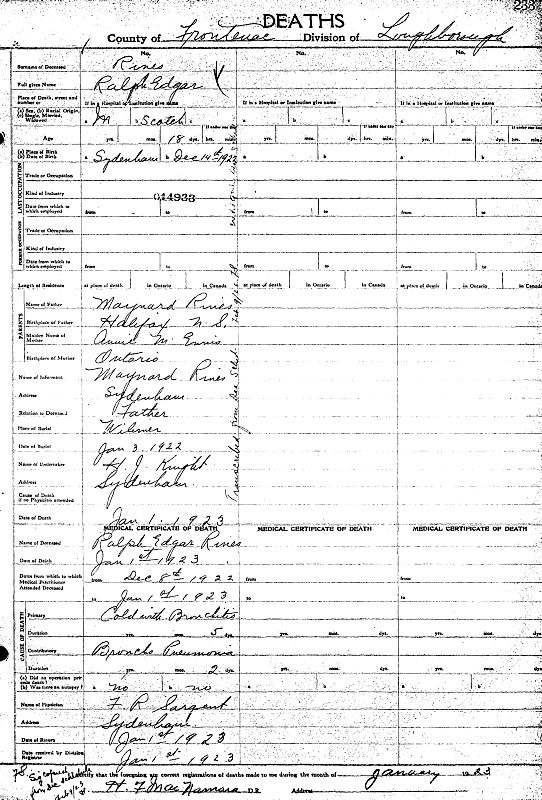 233
DEATHS
County of Frontenac Division of Loughborough
No. No. No.
Surname of Deceased Rines
Full given Name Ralph Edgar
Place of Death, street and number or If in a Hospital or Institution give name If in a Hospital or Institution give name If in a Hospital or Institution give name
(a) Sex, (b) Racial Origin, (c) Single, Married, Widowed a M b Scotch c
If under one day
Age yrs. mos. 18 dys. hrs. min. yrs. mos. dys. hrs. min. yrs. mos. dys. hrs. min.
(a) Place of Birth (b) Date of Birth a Sydenham b Dec 14th 1922
LAST OCCUPATION
Trade or Occupation
Kind of Industry 014933
Date from which to which employed from to from to from to
Trade or Occupation
Kind of Industry
Date from which to which employed from to from to from to
Length of Residence at place of death in Ontario in Canada at place of death in Ontario in Canada at place of death in Ontario in Canada
PARENTS
Name of Father Maynard Rines
Birthplace of Father Halifax N. S.
Maiden Name of Mother Annie M. Ennis
Birthplace of Mother Ontario
Name of Informant Maynard Rines
Address Sydenham
Relation to Deceased Father
Place of Burial Wilmer
Date of Burial Jan 3, 1922
Name of Undertaker H. J. Knight
Address Sydenham
Cause of Death if no Physician attended
Transcribed from Dec Sched.
Date of Death Jan 1, 1923
MEDICAL CERTIFICATE OF DEATH MEDICAL CERTIFICATE OF DEATH MEDICAL CERTIFICATE OF DEATH
Name of Deceased Ralph Edgar Rines
Date of Death Jan 1st 1923
Dates from which to which Medical Practitioner Attended Deceased from Dec 8th 1922 from from
to Jan 1st 1923 to to
CAUSE OF DEATH
Primary Cold with Bronchitis
Duration yrs. mos. 5 dys. yrs. mos. dys. yrs. mos. dys.
Contributory Broncho Pneumonia
Duration yrs. mos. 2 dys. yrs. mos. dys. yrs. mos. dys.
(a) Did an operation precede death? (b) Was there an autopsy? a no b no a b a b
Name of Physician F. R. Sargent
Address Sydenham
Date of Return Jan 1st 1923
Date received by Division Registrar Jan 1st 1923
certify that the foregoing are correct registrations of deaths made to me during the month of January 1923
H. F. MacNamara D.R. Address